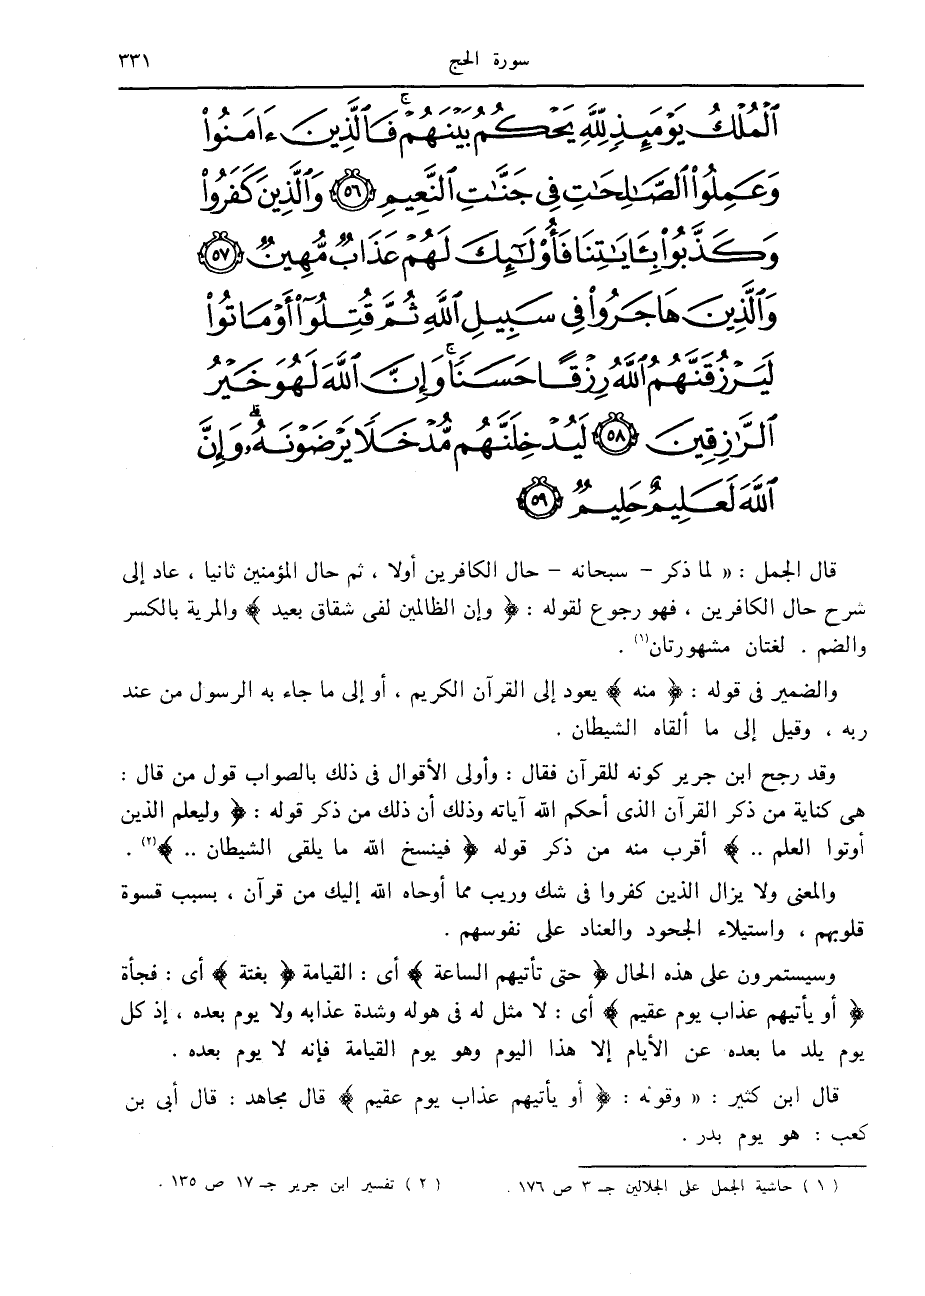 سورة الحج ٣٣١
ٱلْمُلْكُ يَوْمَئِذٍ لِّلَّهِ يَحْكُمُ بَيْنَهُمْ ۚ فَٱلَّذِينَ ءَامَنُوا۟
وَعَمِلُوا۟ ٱلصَّـٰلِحَـٰتِ فِى جَنَّـٰتِ ٱلنَّعِيمِ ٥٦ وَٱلَّذِينَ كَفَرُوا۟
وَكَذَّبُوا۟ بِـَٔايَـٰتِنَا فَأُو۟لَـٰٓئِكَ لَهُمْ عَذَابٌ مُّهِينٌ ٥٧
وَٱلَّذِينَ هَاجَرُوا۟ فِى سَبِيلِ ٱللَّهِ ثُمَّ قُتِلُوٓا۟ أَوْ مَاتُوا۟
لَيَرْزُقَنَّهُمُ ٱللَّهُ رِزْقًا حَسَنًا ۚ وَإِنَّ ٱللَّهَ لَهُوَ خَيْرُ
ٱلرَّٰزِقِينَ ٥٨ لَيُدْخِلَنَّهُم مُّدْخَلًا يَرْضَوْنَهُۥ ۗ وَإِنَّ
ٱللَّهَ لَعَلِيمٌ حَلِيمٌ ٥٩
قال الجمل : « لما ذكر – سبحانه – حال الكافرين أولا ، ثم حال المؤمنين ثانيا ، عاد إلى
شرح حال الكافرين ، فهو رجوع لقوله : ﴿ وإن الظالمين لفى شقاق بعيد ﴾ والمرية بالكسر
والضم . لغتان مشهورتان(١) .
والضمير فى قوله : ﴿ منه ﴾ يعود إلى القرآن الكريم ، أو إلى ما جاء به الرسول من عند
ربه ، وقيل إلى ما ألقاه الشيطان .
وقد رجح ابن جرير كونه للقرآن فقال : وأولى الأقوال فى ذلك بالصواب قول من قال :
هى كناية من ذكر القرآن الذى أحكم الله آياته وذلك أن ذلك من ذكر قوله : ﴿ وليعلم الذين
أوتوا العلم .. ﴾ أقرب منه من ذكر قوله ﴿ فينسخ الله ما يلقى الشيطان .. ﴾(٢) .
والمعنى ولا يزال الذين كفروا فى شك وريب مما أوحاه الله إليك من قرآن ، بسبب قسوة
قلوبهم ، واستيلاء الجحود والعناد على نفوسهم .
وسيستمرون على هذه الحال ﴿ حتى تأتيهم الساعة ﴾ أى : القيامة ﴿ بغتة ﴾ أى : فجأة
﴿ أو يأتيهم عذاب يوم عقيم ﴾ أى : لا مثل له فى هوله وشدة عذابه ولا يوم بعده ، إذ كل
يوم يلد ما بعده عن الأيام إلا هذا اليوم وهو يوم القيامة فإنه لا يوم بعده .
قال ابن كثير : « وقوله : ﴿ أو يأتيهم عذاب يوم عقيم ﴾ قال مجاهد : قال أبى بن
كعب : هو يوم بدر .
( ١ ) حاشية الجمل على الجلالين جـ ٣ ص ١٧٦ . ( ٢ ) تفسير ابن جرير جـ ١٧ ص ١٣٥ .